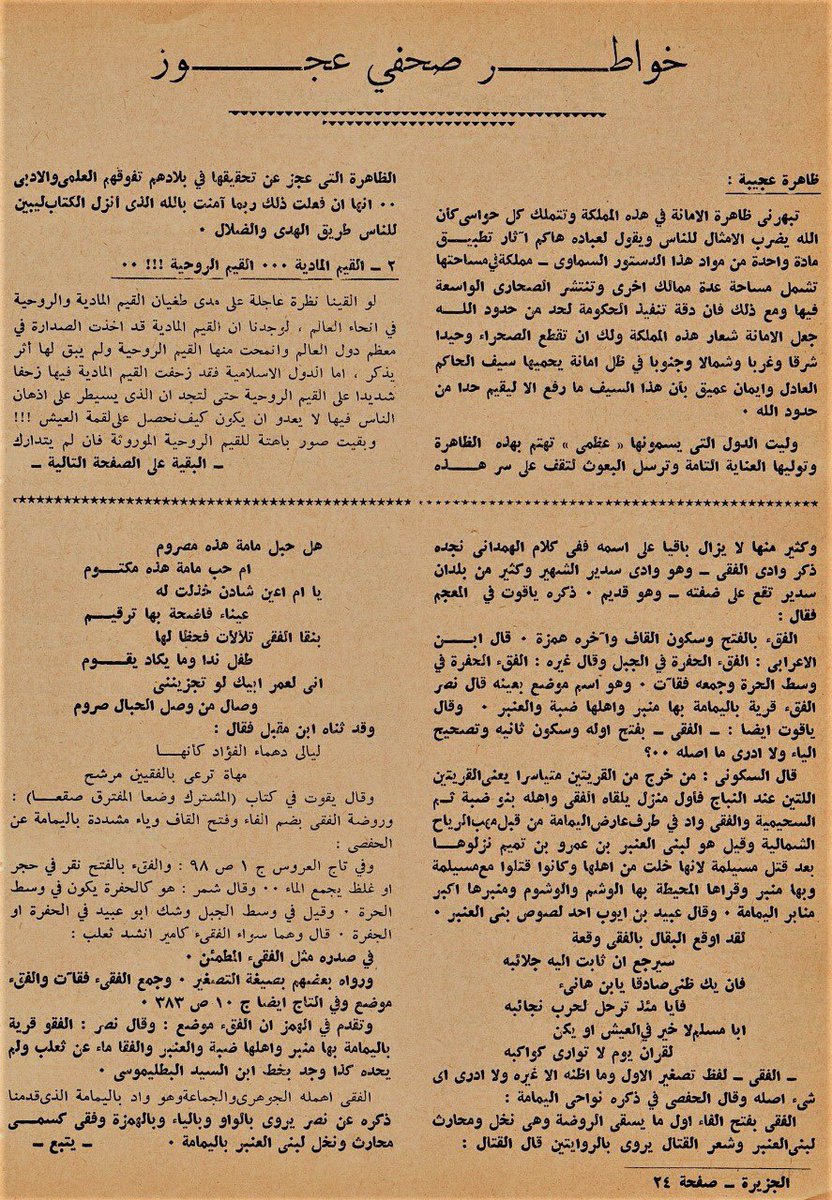 خواطر صحفي عجوز
ظاهرة عجيبة :
تبهرنى ظاهرة الامانة في هذه المملكة وتتملك كل حواسى كأن
الله يضرب الامثال للناس ويقول لعباده هاكم آثار تطبيق
مادة واحدة من مواد هذا الدستور السماوى ـ مملكة في مساحتها
تشمل مساحة عدة ممالك اخرى وتنتشر الصحارى الواسعة
فيها ومع ذلك فان دقة تنفيذ الحكومة لحد من حدود الله
جعل الامانة شعار هذه المملكة ولك ان تقطع الصحراء وحيدا
شرقا وغربا وشمالا وجنوبا في ظل امانة يحميها سيف الحاكم
العادل وايمان عميق بأن هذا السيف ما رفع الا ليقيم حدا من
حدود الله ٠
وليت الدول التى يسمونها « عظمى » تهتم بهذه الظاهرة
وتوليها العناية التامة وترسل البعوث لتقف على سر هذه
الظاهرة التى عجز عن تحقيقها في بلادهم تفوقهم العلمى والادبى
٠٠ انها ان فعلت ذلك ربما آمنت بالله الذى أنزل الكتاب ليبين
للناس طريق الهدى والضلال ٠
٢ ـ القيم المادية ٠٠٠ القيم الروحية !!! ٠٠
لو القينا نظرة عاجلة على مدى طغيان القيم المادية والروحية
في انحاء العالم ، لوجدنا ان القيم المادية قد اخذت الصدارة في
معظم دول العالم وانمحت منها القيم الروحية ولم يبق لها أثر
يذكر ، اما الدول الاسلامية فقد زحفت القيم المادية فيها زحفا
شديدا على القيم الروحية حتى لتجد ان الذى يسيطر على اذهان
الناس فيها لا يعدو ان يكون كيف نحصل على لقمة العيش !!!
وبقيت صور باهتة للقيم الروحية الموروثة فان لم يتدارك
ـ البقية على الصفحة التالية ـ
وكثير منها لا يزال باقيا على اسمه ففى كلام الهمدانى نجده
ذكر وادى الفقى ـ وهو وادى سدير الشهير وكثير من بلدان
سدير تقع على ضفته ـ وهو قديم ٠ ذكره ياقوت في المعجم
فقال :
الفقء بالفتح وسكون القاف وآخره همزة ٠ قال ابن
الاعرابى : الفقء الحفرة في الجبل وقال غيره : الفقء الحفرة في
وسط الحرة وجمعه فقآت ٠ وهو اسم موضع بعينه قال نصر
الفقء قرية باليمامة بها منبر واهلها ضبة والعنبر ٠ وقال
ياقوت ايضا : ـ الفقى ـ بفتح اوله وسكون ثانيه وتصحيح
الياء ولا ادرى ما اصله ٠٠؟
قال السكونى : من خرج من القريتين متياسرا يعنى القريتين
اللتين عند النباج فأول منزل يلقاه الفقى واهله بنو ضبة ثم
السحيمية والفقى واد في طرف عارض اليمامة من قبل مهب الرياح
الشمالية وقيل هو لبنى العنبر بن عمرو بن تميم نزلوها
بعد قتل مسيلمة لانها خلت من اهلها وكانوا قتلوا مع مسيلمة
وبها منبر وقراها المحيطة بها الوشم والوشوم ومنبرها اكبر
منابر اليمامة ٠ وقال عبيد بن ايوب احد لصوص بنى العنبر ٠
لقد اوقع البقال بالفقى وقعة
سيرجع ان ثابت اليه جلائبه
فان يك ظنى صادقا يابن هانىء
فايا مئذ ترحل لحرب نجائبه
ابا مسلم لا خير في العيش او يكن
لقران يوم لا توارى كواكبه
ـ الفقى ـ لفظ تصغير الاول وما اظنه الا غيره ولا ادرى اى
شىء اصله وقال الحفصى في ذكره نواحى اليمامة :
الفقى بفتح الفاء اول ما يسقى الروضة وهى نخل ومحارث
لبنى العنبر وشعر القتال يروى بالروايتين قال القتال :
هل حبل مامة هذه مصروم
ام حب مامة هذه مكتوم
يا ام اعين شادن خذلت له
عيناء فاضحة بها ترقيم
بنقا الفقى تلألأت فحظا لها
طفل ندا وما يكاد يقوم
انى لعمر ابيك لو تجزيننى
وصال من وصل الحبال صروم
وقد ثناه ابن مقبل فقال :
ليالى دهماء الفؤاد كأنها
مهاة ترعى بالفقيين مرشح
وقال يقوت في كتاب (المشترك وضعا المفترق صقعا) :
وروضة الفقى بضم الفاء وفتح القاف وياء مشددة باليمامة عن
الحفصى :
وفي تاج العروس ج ١ ص ٩٨ : والفقء بالفتح نقر في حجر
او غلظ يجمع الماء ٠٠ وقال شمر : هو كالحفرة يكون في وسط
الحرة ٠ وقيل في وسط الجبل وشك ابو عبيد في الحفرة او
الجفرة ٠ قال وهما سواء الفقىء كامير انشد ثعلب :
في صدره مثل الفقىء المطمئن ٠
ورواه بعضهم بصيغة التصغير ٠ وجمع الفقىء فقآت والفقء
موضع وفي التاج ايضا ج ١٠ ص ٣٨٣ ٠
وتقدم في الهمز ان الفقء موضع : وقال نصر : الفقو قرية
باليمامة بها منبر واهلها ضبة والعنبر والفقا ماء عن ثعلب ولم
يحده كذا وجد بخط ابن السيد البطليموسى ٠
الفقى اهمله الجوهرى والجماعة وهو واد باليمامة الذى قدمنا
ذكره عن نصر يروى بالواو وبالياء وبالهمزة وفقى كسمى
محارث ونخل لبنى العنبر باليمامة ٠ ـ يتبع ـ
الجزيرة ـ صفحة ٢٤